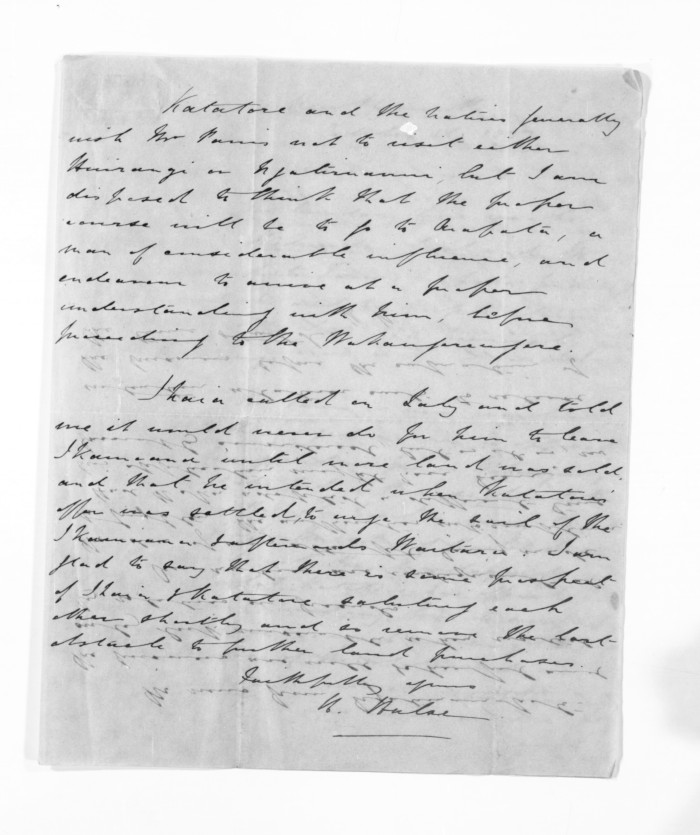 Katatore and the natives generally
wish Mr Parris not to visit either
Huirangi or Ngatimaru, but I am
disposed to think that the proper
course will be to go to Arapata, a
man of considerable influence, and
endeavour to arrive at a proper
understanding with him, before
proceeding to the
Ihaia called on Saty and told
me it would never do for him to leave
until more land was sold
and that he intended when Katatores
offer was settled, to urge the sail of the
Ikamoana & afterwards Waitara. I am
glad to say that there is some prospect
of Ihaia & Katatore saluting each
other shortly and so remove the last
obstacle to further land purchases.
Faithfully yours
H. Halse